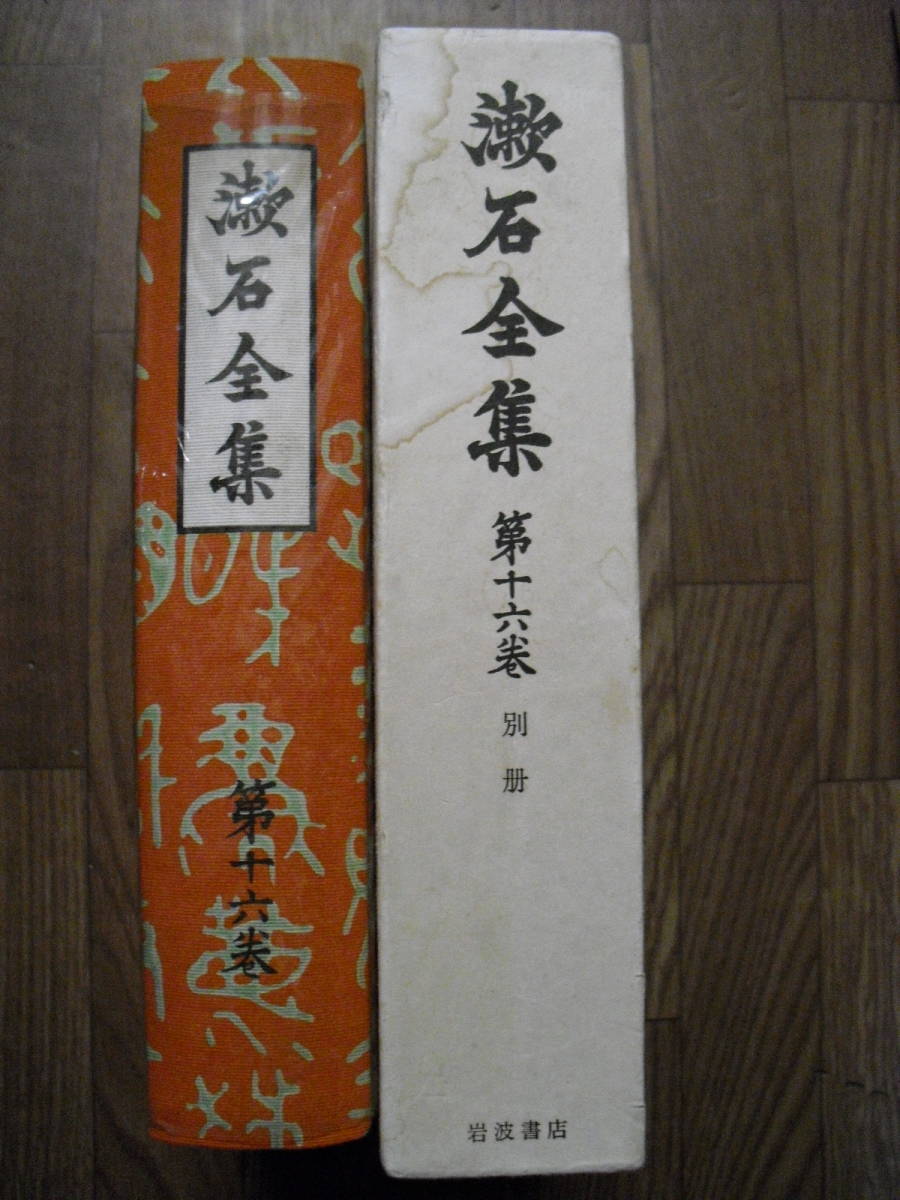 漱石全集
第十六巻
漱石全集
第十六巻
別册
岩波書店